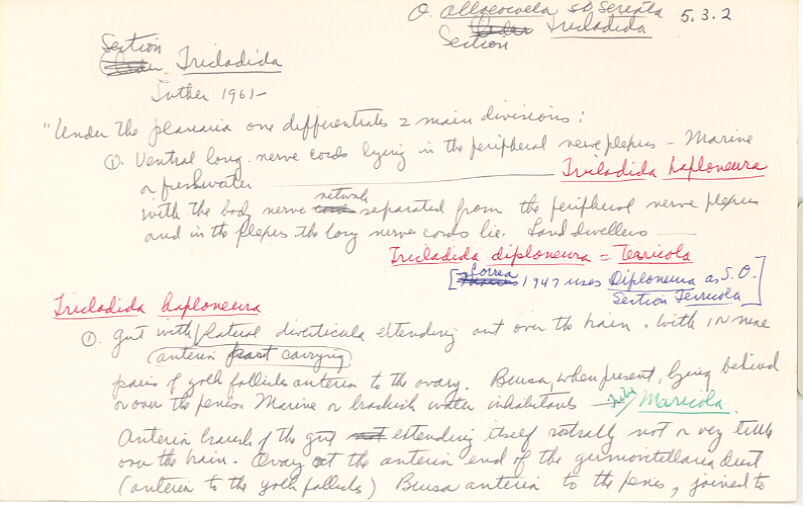 O. Alloeocoela SO Seriata 5.3.2
Section Tricladida
Section
Order Tricladida
Luther 1961-
"Under the planaria one differentiates 2 main divisions:
① Ventral long. nerve cords lying in the peripheral nerve plexus - Marine
or freshwater Tricladida haploneura
with the body nerve network separated from the peripheral nerve plexus
and in the plexus the long nerve cords lie. Land dwellers
Tricladida diploneura = Terricola
[Correa 1947 uses Diploneura as S.O.
Section Terricola]
Tricladida haploneura
① Gut with lateral diverticula extending out over the brain. With 1 or more
(anterior part carrying)
pairs of yolk follicles anterior to the ovary. Bursa, when present, lying behind
or over the penis. Marine or brackish water inhabitants - Maricola
Anterior branch of the gut extending itself rostrally not or very little
over the brain. Ovary at the anterior end of the germovitellaria duct
(anterior to the yolk follicles) Bursa anterior to the penis, joined to